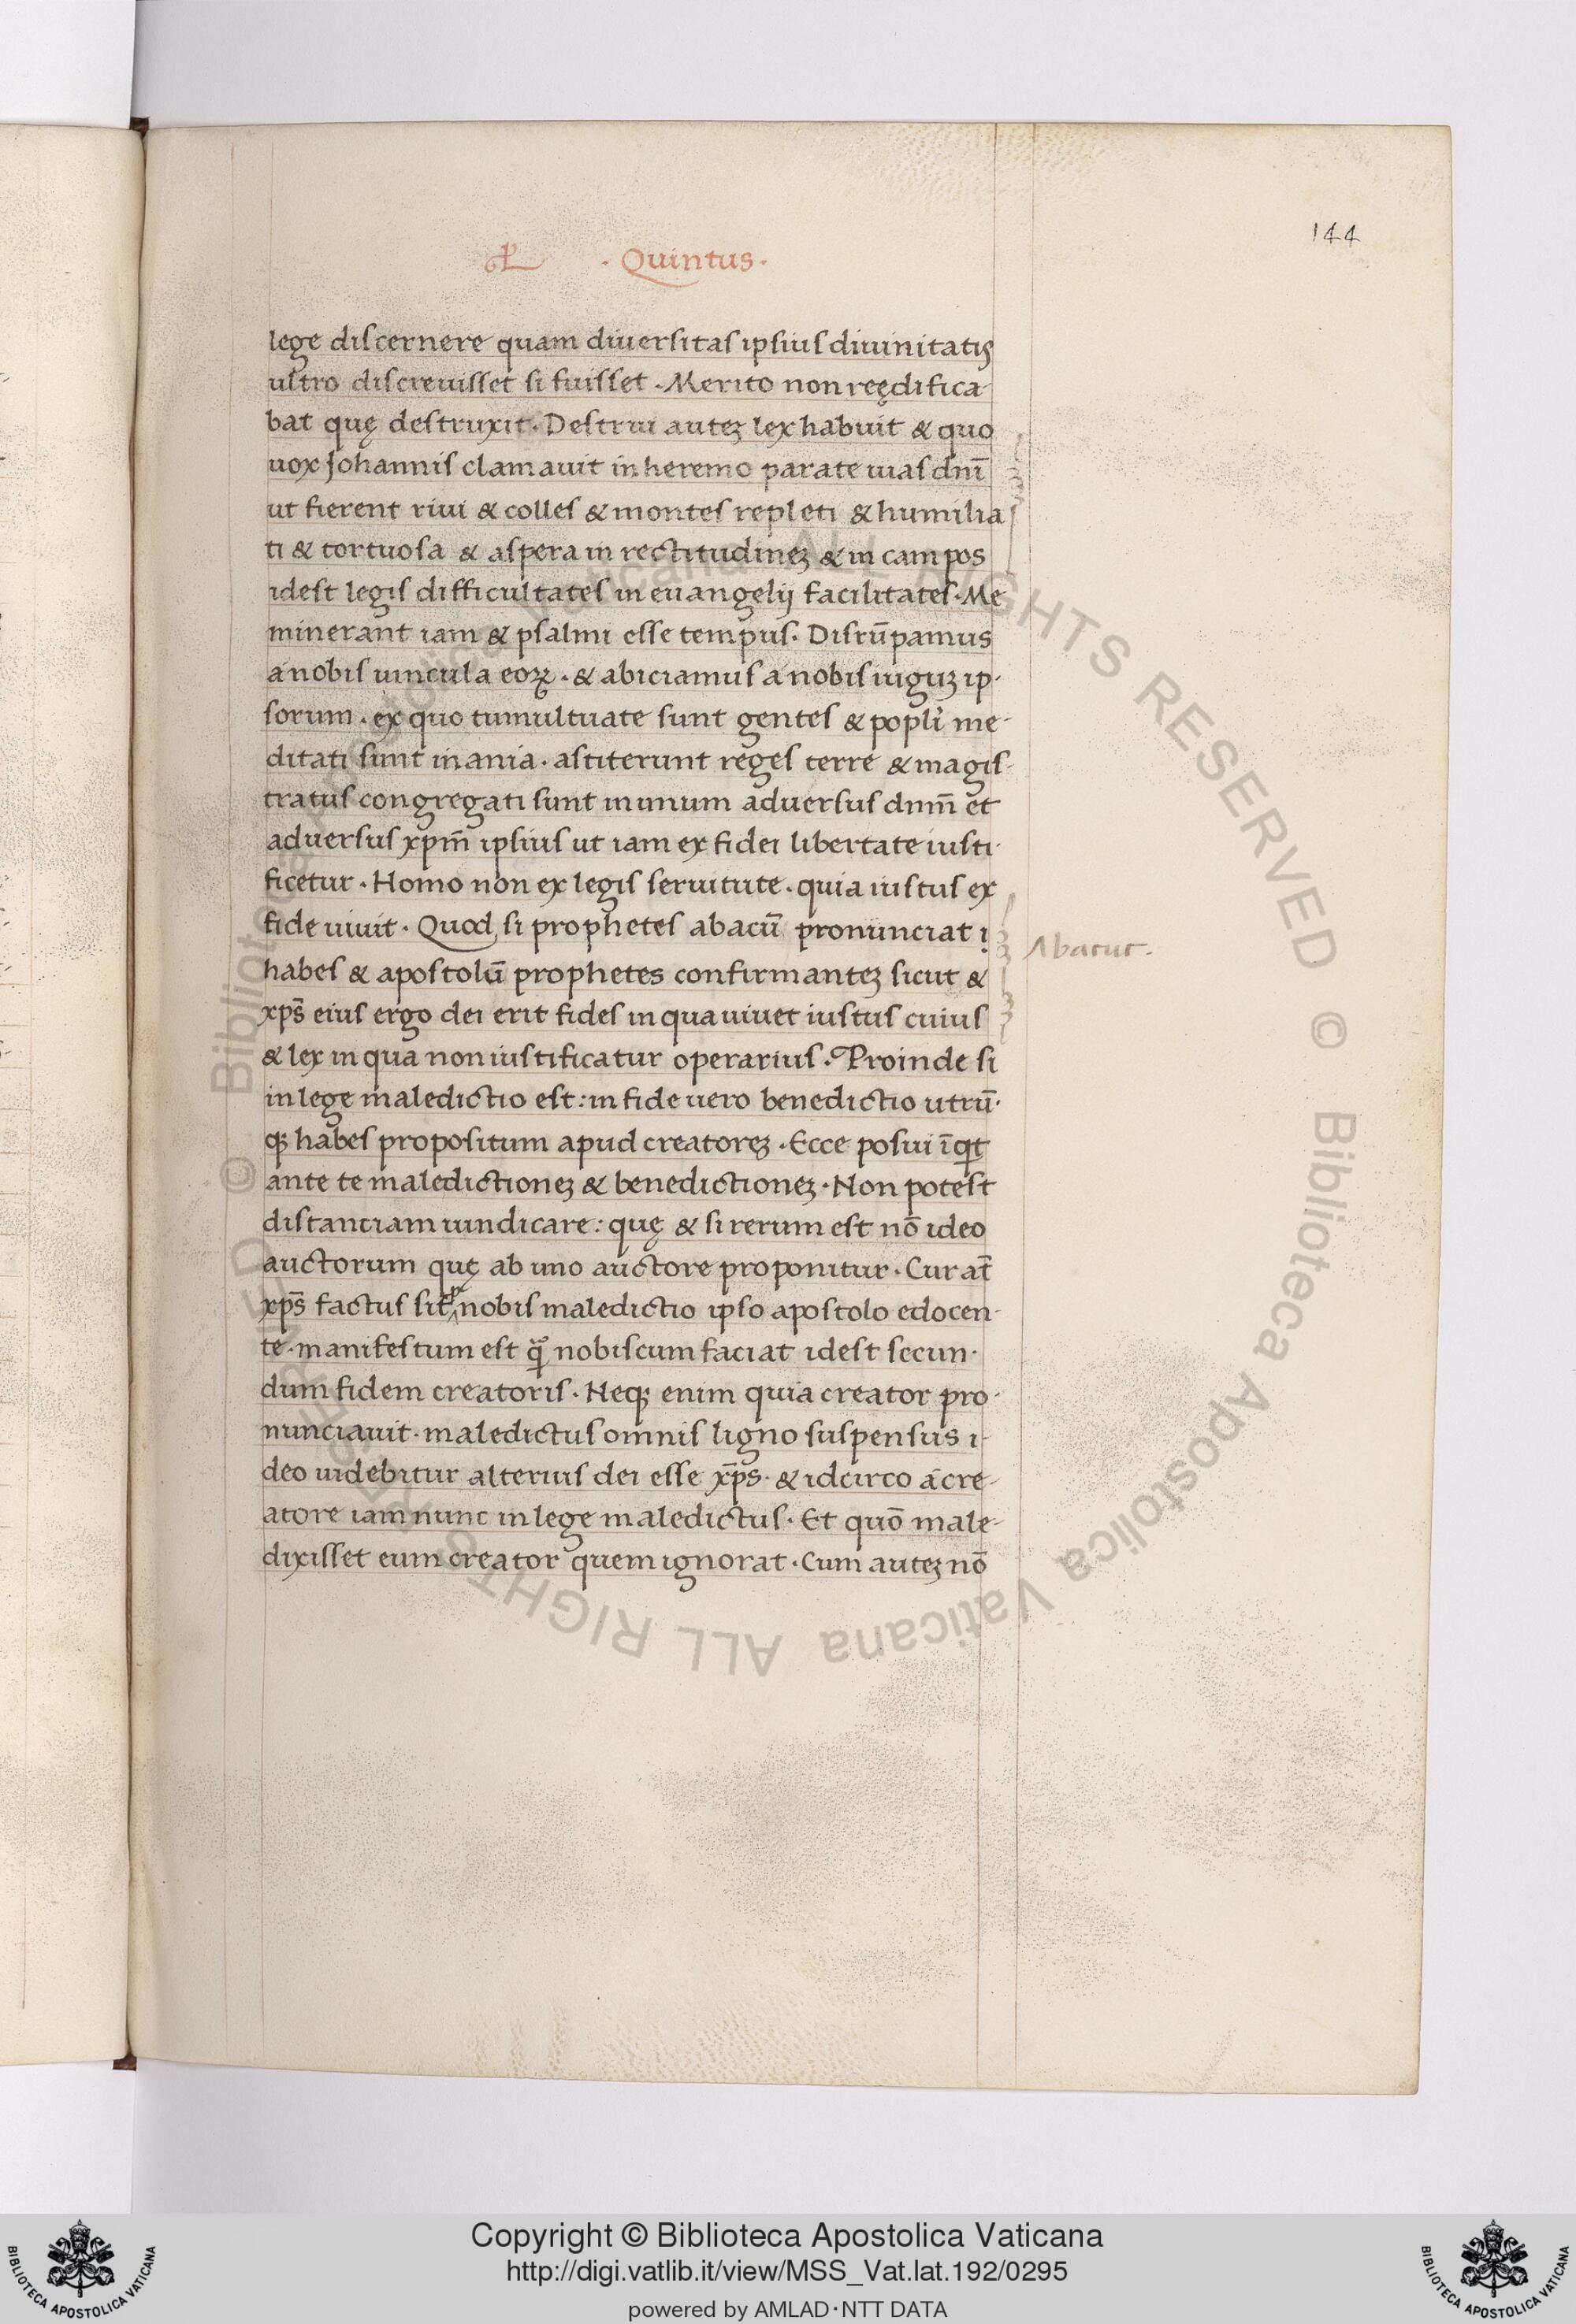 144
· Quintus ·
lege discernere quam diuersitas ipsius diuinitatis
ultro discreuisset si fuisset · Merito non reędifica
bat quę destruxit · Destrui auteꝫ lex habuit & quo
uox Johannis clamauit in heremo parate uias dnī
ut fierent riui & colles & montes repleti & humilia
ti & tortuosa & aspera in rectitudineꝫ & in campos
idest legis difficultates in euangelij facilitates · Me
minerant iam & psalmi esse tempus · Disrūpamus
a nobis uincula eoꝝ · & abiciamus a nobis iuguꝫ ip-
sorum · ex quo tumultuate sunt gentes & popli me-
ditati sunt inania · astiterunt reges terre & magis-
tratus congregati sunt in unum aduersus dnm̄ et
aduersus xpm̄ ipsius ut iam ex fidei libertate iusti-
ficetur · Homo non ex legis seruitute · quia iustus ex
fide uiuit · Quod si prophetes abacū pronunciat i
Abacuc ·
habes & apostolū prophetes confirmanteꝫ sicut &
xps̄ eius ergo dei erit fides in qua uiuet iustus cuius
& lex in qua non iustificatur operarius · Proinde si
in lege maledictio est : in fide uero benedictio utrū-
qꝫ habes propositum apud creatoreꝫ · Ecce posui īqt
ante te maledictioneꝫ & benedictioneꝫ · Non potest
distanciam uindicare : quę & si rerum est nō ideo
auctorum quę ab uno auctore proponitur · Cur at̄
xps̄ factus sit ꝓ nobis maledictio ipso apostolo edocen-
te · manifestum est qͦ nobiscum faciat idest secun-
dum fidem creatoris · Neqꝫ enim quia creator pro-
nunciauit · maledictus omnis ligno suspensus i-
deo uidebitur alterius dei esse xp̄s · & idcirco a cre-
atore iam nunc in lege maledictus · Et quō male-
dixisset eum creator quem ignorat · Cum auteꝫ nō
© Biblioteca Apostolica Vaticana ALL RIGHTS RESERVED © Biblioteca Apostolica Vaticana ALL RIGHTS RESERVED
Copyright © Biblioteca Apostolica Vaticana
http://digi.vatlib.it/view/MSS_Vat.lat.192/0295
powered by AMLAD·NTT DATA
BIBLIOTECA APOSTOLICA VATICANA
BIBLIOTECA APOSTOLICA VATICANA